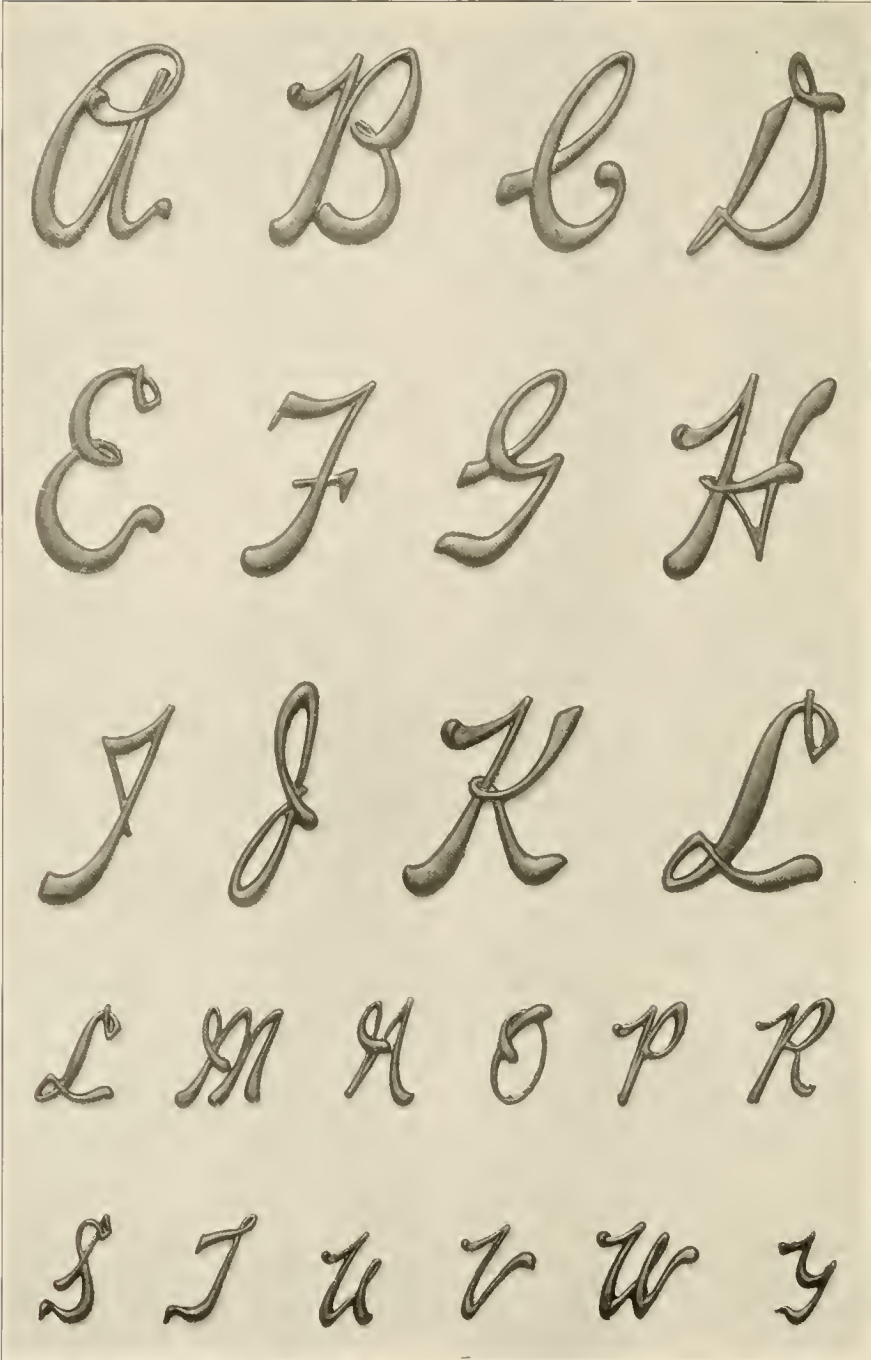 A B C D
E F G H
I J K L
L M N O P R
S T U V W Y